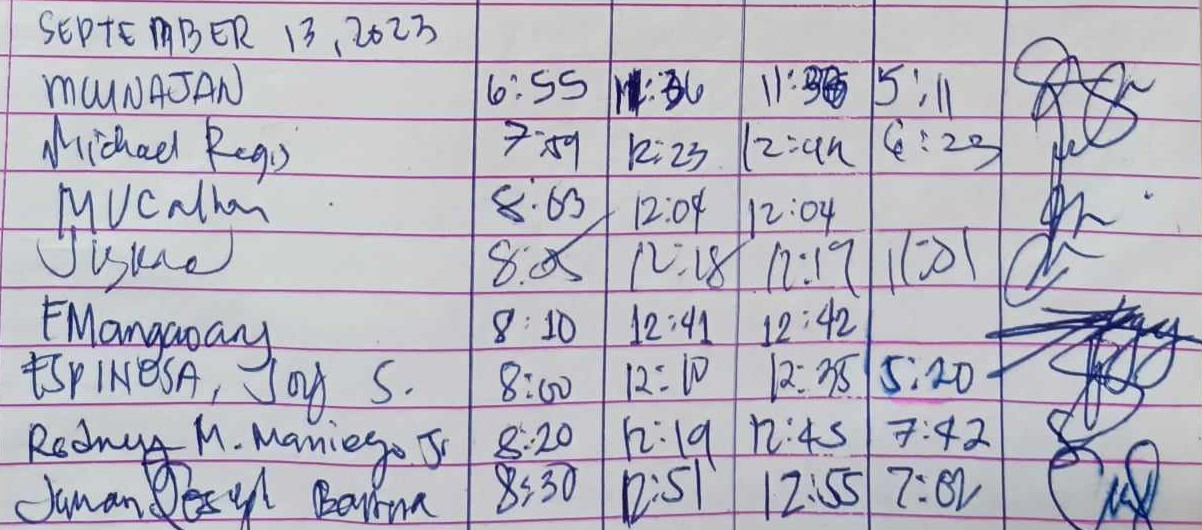 SEPTEMBER 13, 2023
MUNAJAN 6:55 11:36 11:36 5:11
Michael Regis 7:59 12:23 12:44 6:23
8:03 12:04 12:04
8:05 12:18 12:19
FMangaoang 8:10 12:41 12:42
ESPINOSA, Joy S. 8:00 12:10 12:35 5:20
Rodney M. Maniego Jr 8:20 12:19 12:45 7:42
Joseph 8:30 12:51 12:55 7:02